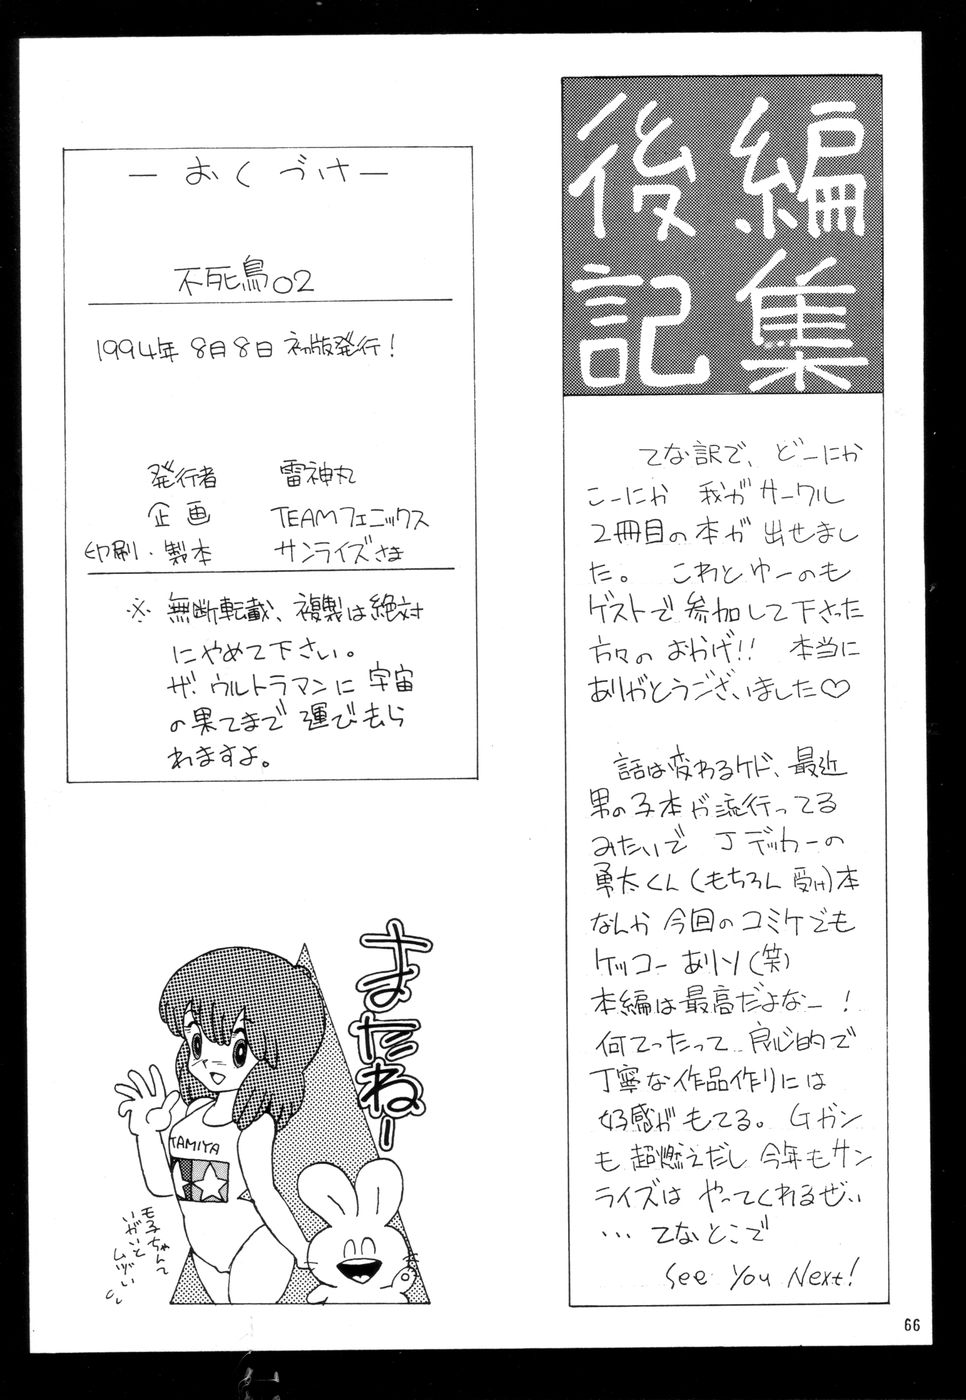 編集後記
てな訳で、どーにか
こーにか 我がサークル
2冊目の本が 出せまし
た。 これとゆーのも
ゲストで参加して下さった
方々の おかげ!! 本当に
ありがとうございました♡
話は変わるケド、最近
男の子本が流行ってる
みたいで Jデッカーの
勇太くん(もちろん 受け)本
なんか 今回のコミケでも
ケッコー ありソ(笑)
本編は最高だよなー!
何てったって 良心的で
丁寧な作品作りには
好感がもてる。 Gガン
も 超燃えだし 今年もサン
ライズは やってくれるぜい
… てなとこで
See You Next!
— おくづけ —
不死鳥02
1994年 8月8日 初版発行!
発行者 雷神丸
企画 TEAMフェニックス
印刷・製本 サンライズさま
※ 無断転載、複製は絶対
にやめて下さい。
ザ・ウルトラマンに 宇宙
の果てまで 運びもら
れますよ。
まだねー
TAMIYA
モ子ちゃんて
いがいと
ムヅい
66